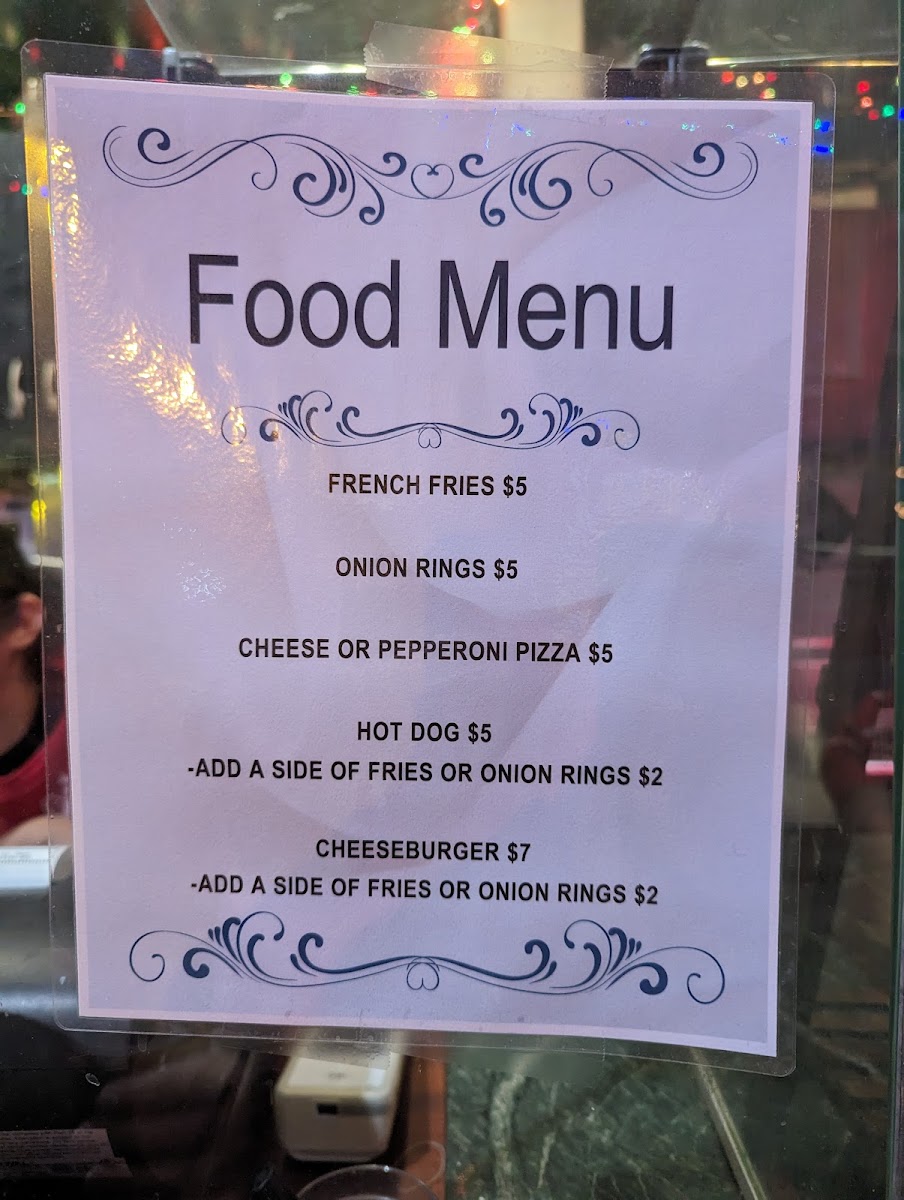 Food Menu
FRENCH FRIES $5
ONION RINGS $5
CHEESE OR PEPPERONI PIZZA $5
HOT DOG $5
-ADD A SIDE OF FRIES OR ONION RINGS $2
CHEESEBURGER $7
-ADD A SIDE OF FRIES OR ONION RINGS $2